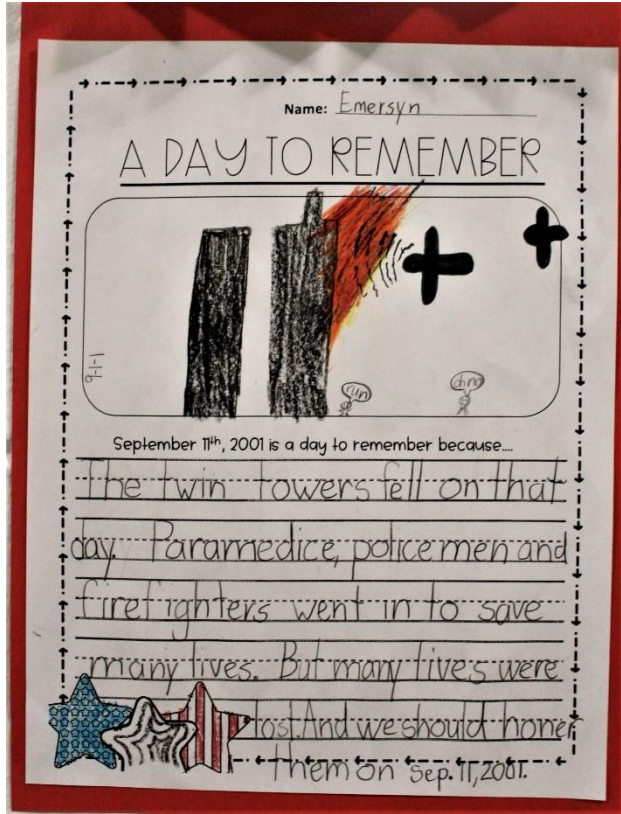 Name: Emersyn
A DAY TO REMEMBER
run
9-1-1
September 11th, 2001 is a day to remember because....
The twin towers fell on that
day. Paramedice, police men and
firefighters went in to save
many lives. But many lives were
lost. And we should honer
them on Sep. 11, 2001.